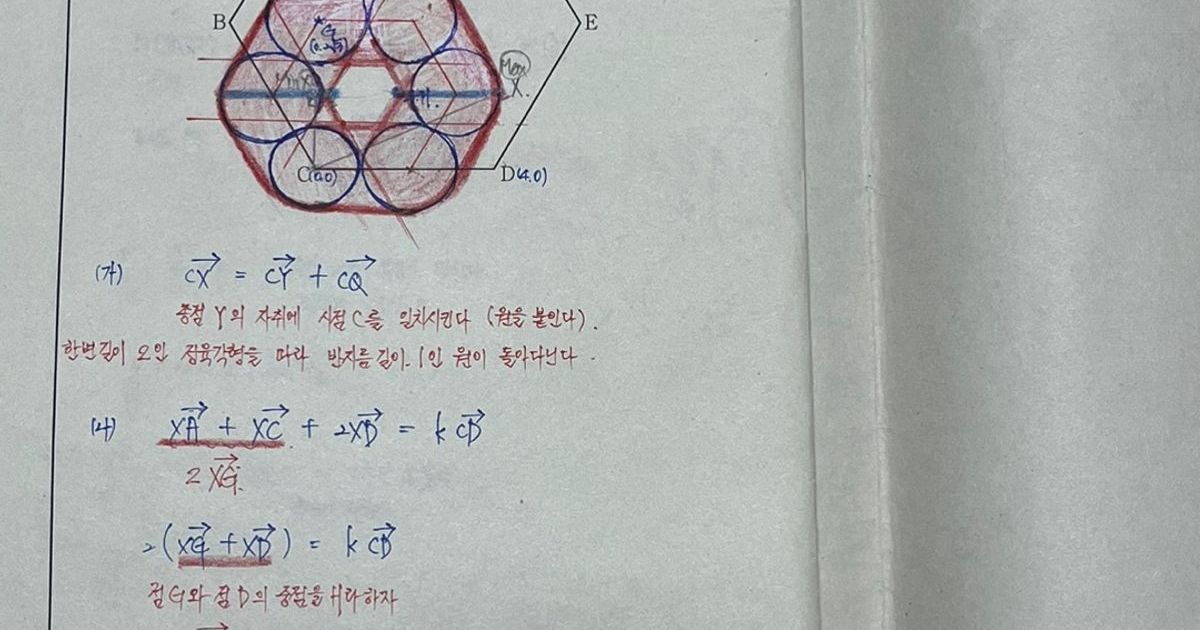 B
E
G
(0, 2√3)
Max
X
H
C(0,0)
D(4,0)
(가) CX = CY + CQ
종점 Y의 자취에 시점 C를 일치시킨다 (원을 붙인다).
한변길이 2인 정육각형을 따라 반지름길이 1인 원이 돌아다닌다.
(나) XA + XC + 2XD = k CD
2 XG
2(XG + XD) = k CD
점 G와 점 D의 중점을 H라하자